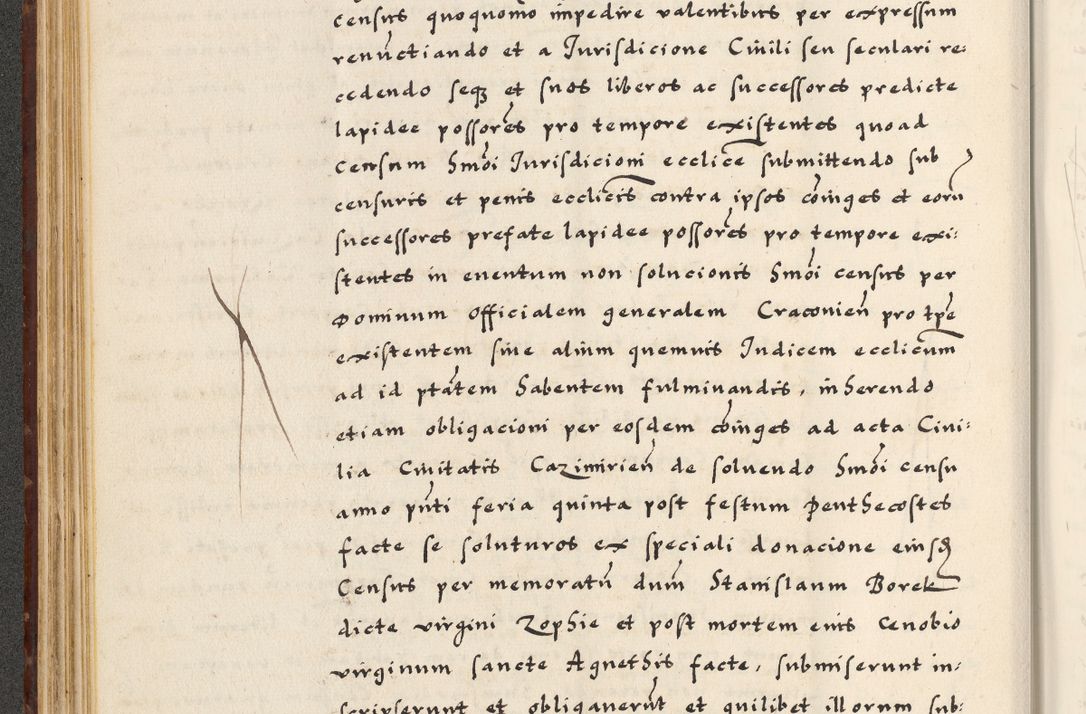 census quoquomo impedire valentibus per expressum
renūctiando et a Jurisdicione Ciuili seu seculari re:
cedendo seqȝ et suos liberos ac successores predicte
lapidee possorēs pro tempore existentes quoad
Censum hmōi Jurisdicioni ecclice submittendo sub
censuris et penis ecclicis contra ipsos cōiuges et eorū
successores prefate lapidee possorēs pro tempore exi:
stentes in euentum non solucionis hmōi census per
Dominum Officialem generalem Cracouieñ pro tpe
existentem siue alium quemuis Judicem ecclicum
ad id ptātem habentem fulminandis, inherendo
etiam obligacioni per eosdem cōiuges ad acta Ciui:
lia Ciuitatis Cazimirieñ de soluendo hmōi censu
anno pñti feria quinta post festum Penthecostes
facte se soluturos ex speciali donacione eiusd
Census per memoratū dum̄ Stanislaum Borek
dicte virgini Zophie et post mortem eius Cenobio
virginum sancte Agnethis facte, submiserunt in:
scripserunt et obligauerūt et quilibet illorum sub: